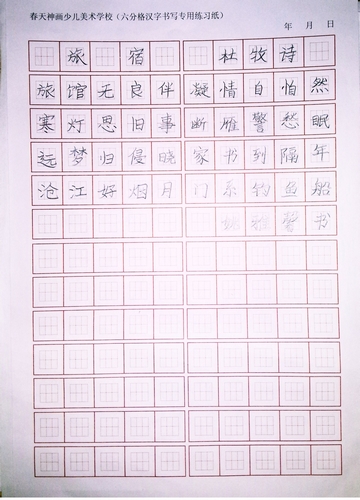 春天神画少儿美术学校（六分格汉字书写专用练习纸）
年 月 日
旅 宿 杜牧诗
旅馆无良伴 凝情自悄然
寒灯思旧事 断雁警愁眠
远梦归侵晓 家书到隔年
沧江好烟月 门系钓鱼船
雅馨书